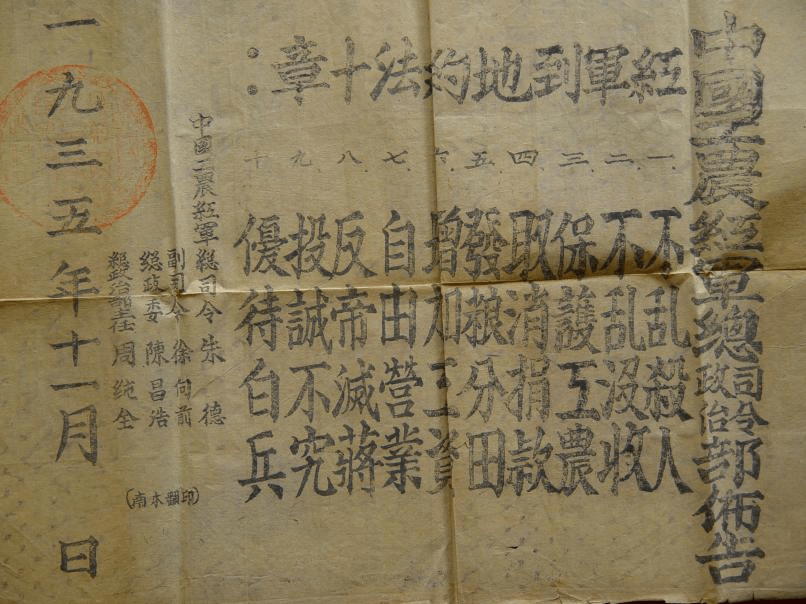 中國工農紅軍總司令政治部佈告
紅軍到地約法十章：
一、不乱殺人
二、不乱沒收
三、保護工農
四、取消捐款
五、發粮分田
六、增加工資
七、自由營業
八、反帝滅蔣
九、投誠不究
十、優待白兵
中國工農紅軍總司令朱德
副司令徐向前
總政委陳昌浩
總政治部主任周純全
(印翻本南)
一九三五年十一月 日